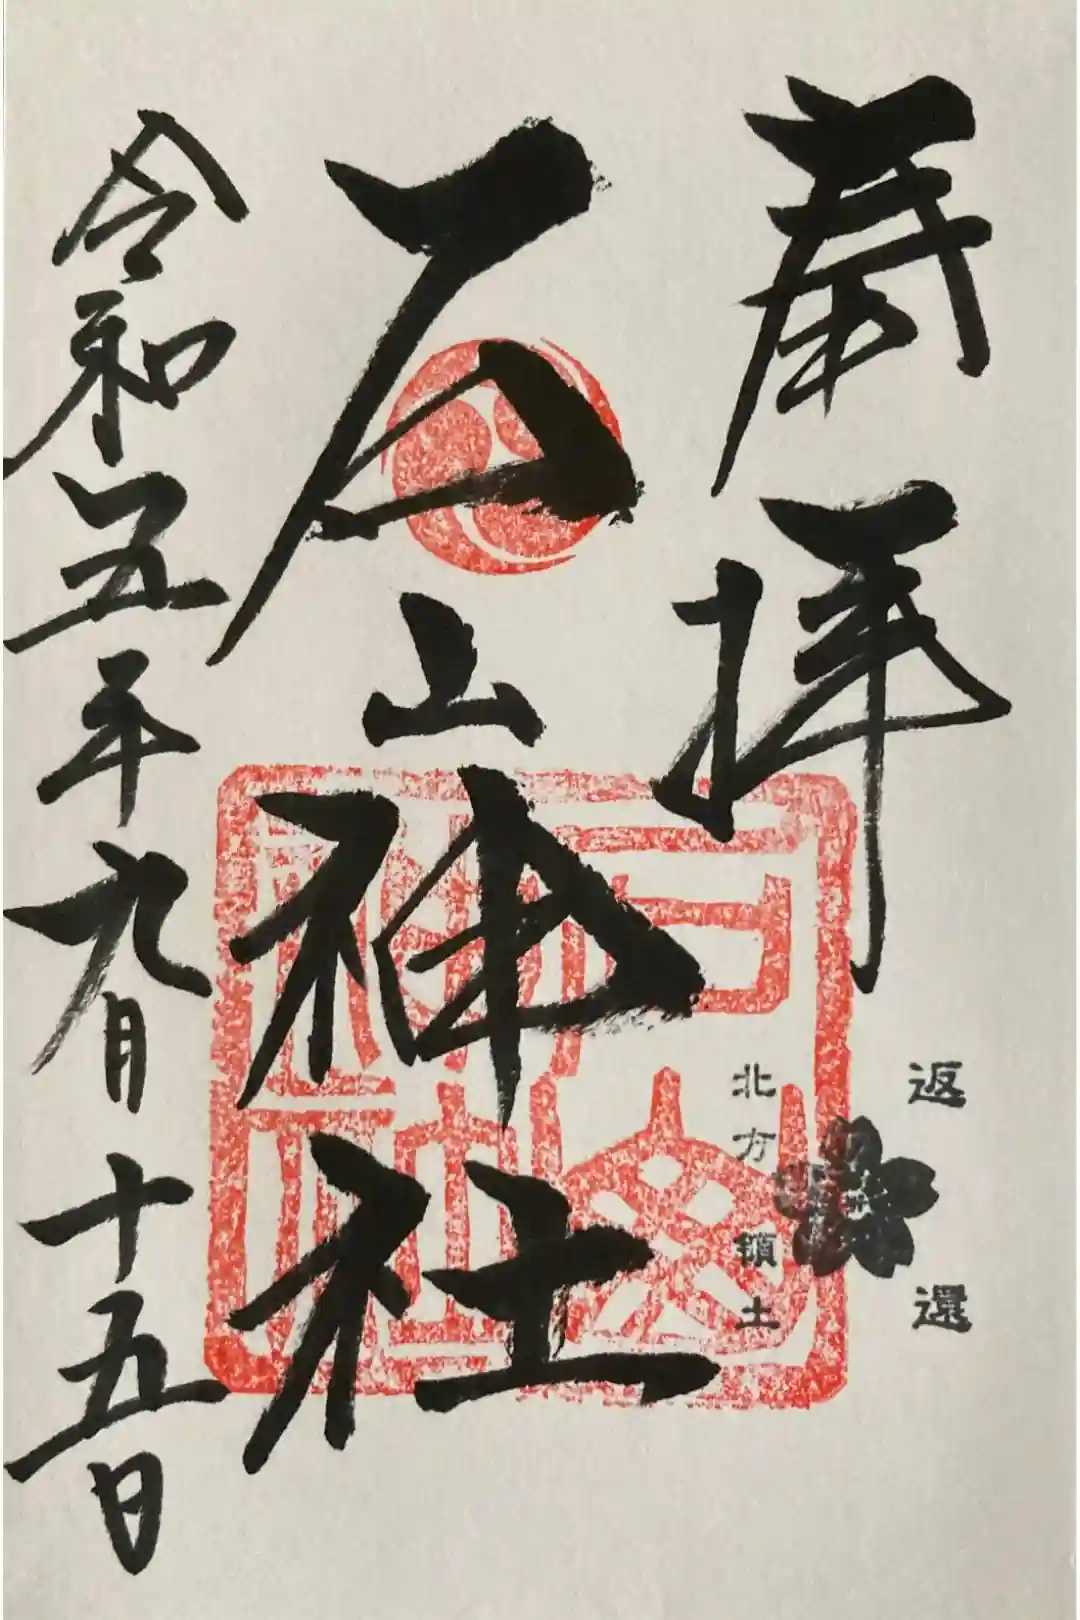 奉拝
石山神社
令和五年九月十五日
石山
神社
返還
北方領土